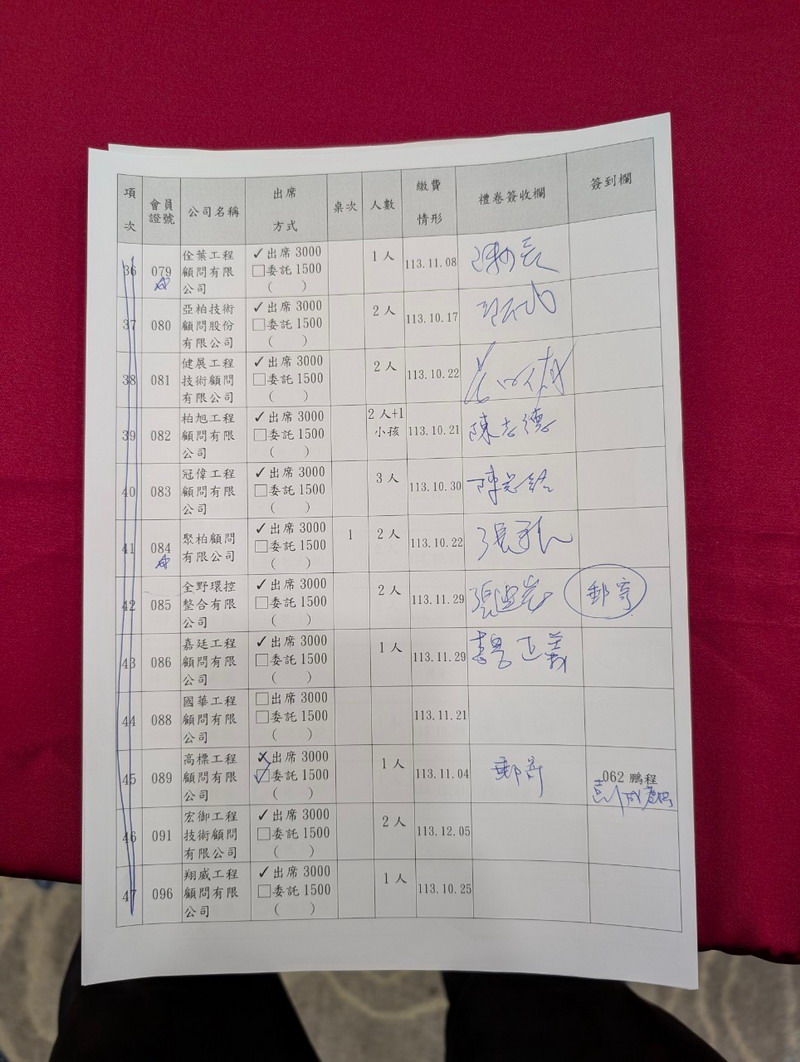 項次 會員證號 公司名稱 出席方式 桌次 人數 繳費情形 禮卷簽收欄 簽到欄
36 079 佺葉工程顧問有限公司 ✓出席 3000 □委託 1500 ( ) 1 人 113.11.08
37 080 亞柏技術顧問股份有限公司 ✓出席 3000 □委託 1500 ( ) 2 人 113.10.17
38 081 健展工程技術顧問有限公司 ✓出席 3000 □委託 1500 ( ) 2 人 113.10.22
39 082 柏旭工程顧問有限公司 ✓出席 3000 □委託 1500 ( ) 2 人+1 小孩 113.10.21 陳志德
40 083 冠偉工程顧問有限公司 ✓出席 3000 □委託 1500 ( ) 3 人 113.10.30
41 084 聚柏顧問有限公司 ✓出席 3000 □委託 1500 ( ) 1 2 人 113.10.22
42 085 全野環控整合有限公司 ✓出席 3000 □委託 1500 ( ) 2 人 113.11.29
43 086 嘉廷工程顧問有限公司 ✓出席 3000 □委託 1500 ( ) 1 人 113.11.29 正義
44 088 國華工程顧問有限公司 □出席 3000 □委託 1500 ( ) 113.11.21
45 089 高標工程顧問有限公司 出席 3000 ✓委託 1500 ( ) 1 人 113.11.04 062 鵬程
46 091 宏御工程技術顧問有限公司 ✓出席 3000 □委託 1500 ( ) 2 人 113.12.05
47 096 翔威工程顧問有限公司 ✓出席 3000 □委託 1500 ( ) 1 人 113.10.25